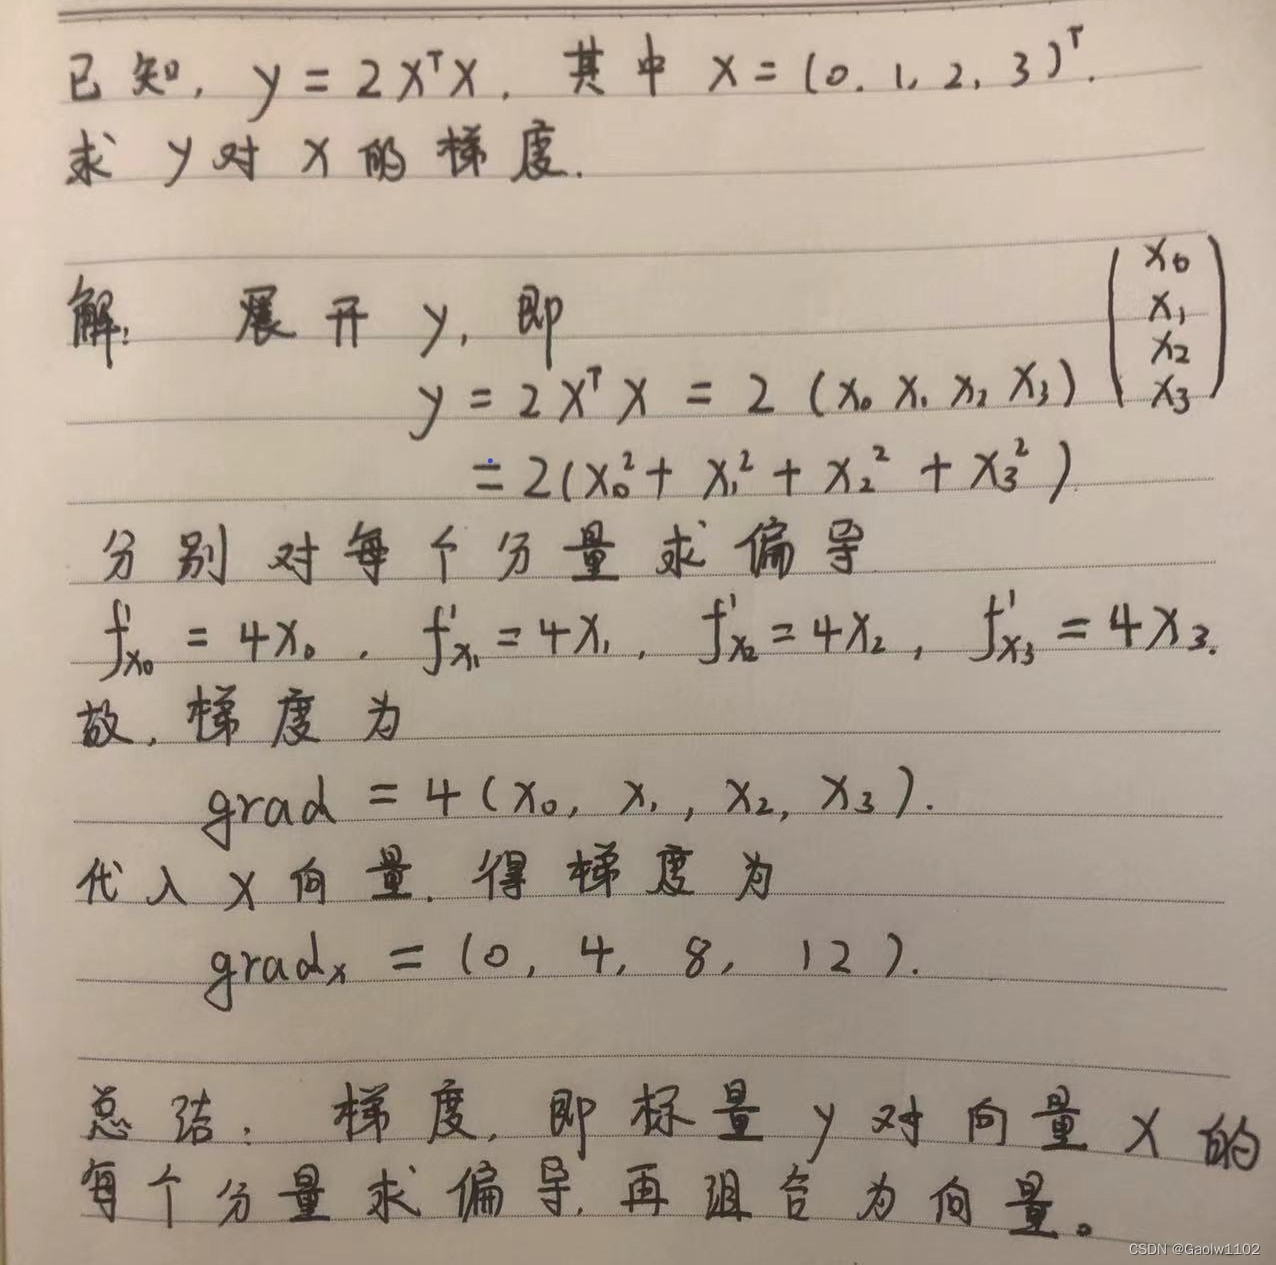 已知, y = 2XᵀX, 其中 X = (0, 1, 2, 3)ᵀ.
求 y 对 X 的梯度.
解: 展开 y, 即
y = 2XᵀX = 2 (x₀ x₁ x₂ x₃) (x₀ x₁ x₂ x₃)
= 2(x₀² + x₁² + x₂² + x₃²)
分别对每个分量求偏导
f'x₀ = 4x₀, f'x₁ = 4x₁, f'x₂ = 4x₂, f'x₃ = 4x₃.
故, 梯度为
grad = 4(x₀, x₁, x₂, x₃).
代入 X 向量, 得梯度为
gradₓ = (0, 4, 8, 12).
总结: 梯度, 即标量 y 对向量 X 的
每个分量求偏导, 再组合为向量。
CSDN @Gaolw1102